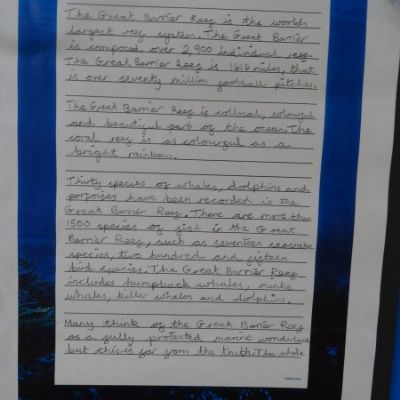 The Great Barrier Reef is the worlds
largest reef system. The Great Barrier
is composed over 2,900 individual reef.
The Great Barrier Reef is 1616 miles, that
is over seventy million football pitches.
The Great Barrier Reef is collosal, colourful
and beautiful part of the ocean. The
coral reef is as colourful as a
bright rainbow.
Thirty species of whales, dolphins and
porpoises have been recorded in the
Great Barrier Reef. There are more than
1500 species of fish in the Great
Barrier Reef, such as seventeen seasnake
species, two hundred and fifteen
bird species. The Great Barrier Reef
includes humpback whales, minke
whales, killer whales and dolphins.
Many think of the Great Barrier Reef
as a fully protected marine wonderland
but this is far from the truth. The whole